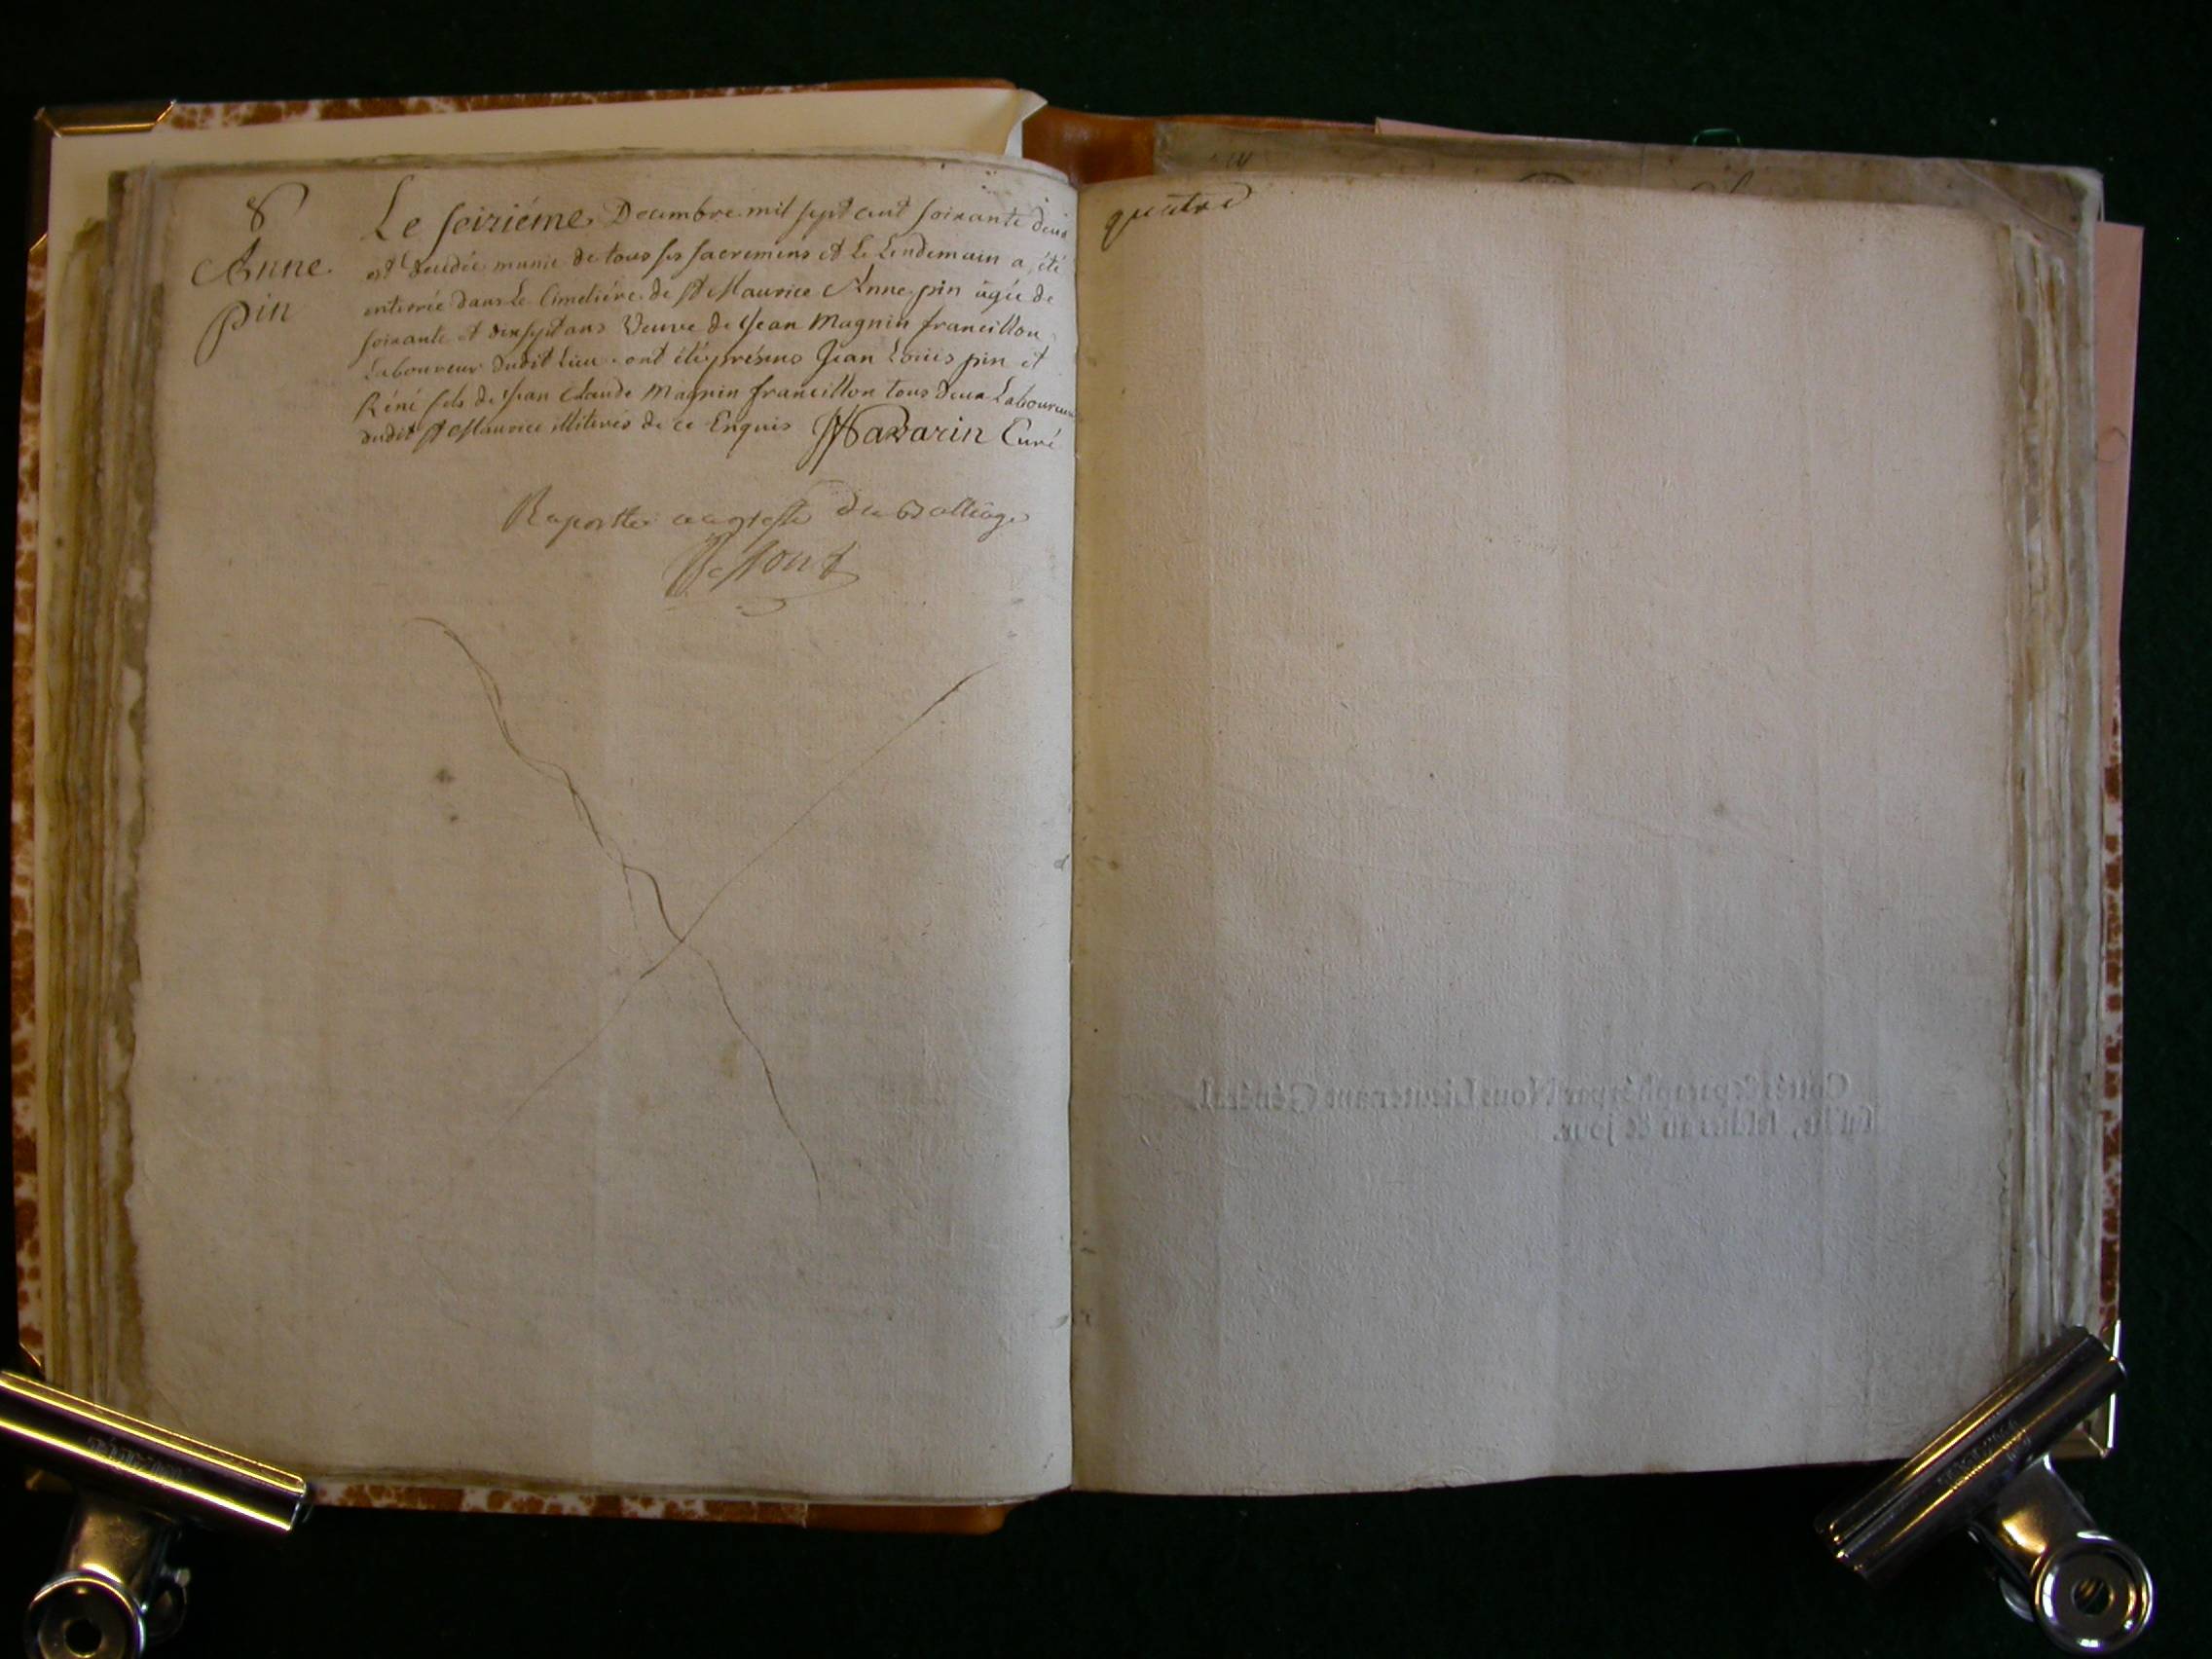 8
Anne
pin
Le seiziéme Decembre mil sept cent soixante deux
est decedée munie de tous ses sacremens et Le Lendemain a été
enterrée dans Le Cimetiére de St Maurice Anne pin agée de
soixante et dix sept ans Veuve de Jean Magnin francillon
Laboureur dudit Lieu ont été présens Jean Loüis pin et
Réné fils de Jean Claude Magnin francillon tous deux Laboureurs
dudit St Maurice illiterés de ce Enquis Curé
Raporté au greffe du Balliage
quatre
Cotté & paraphé par Nous Lieutenant Général,
les an & jour.